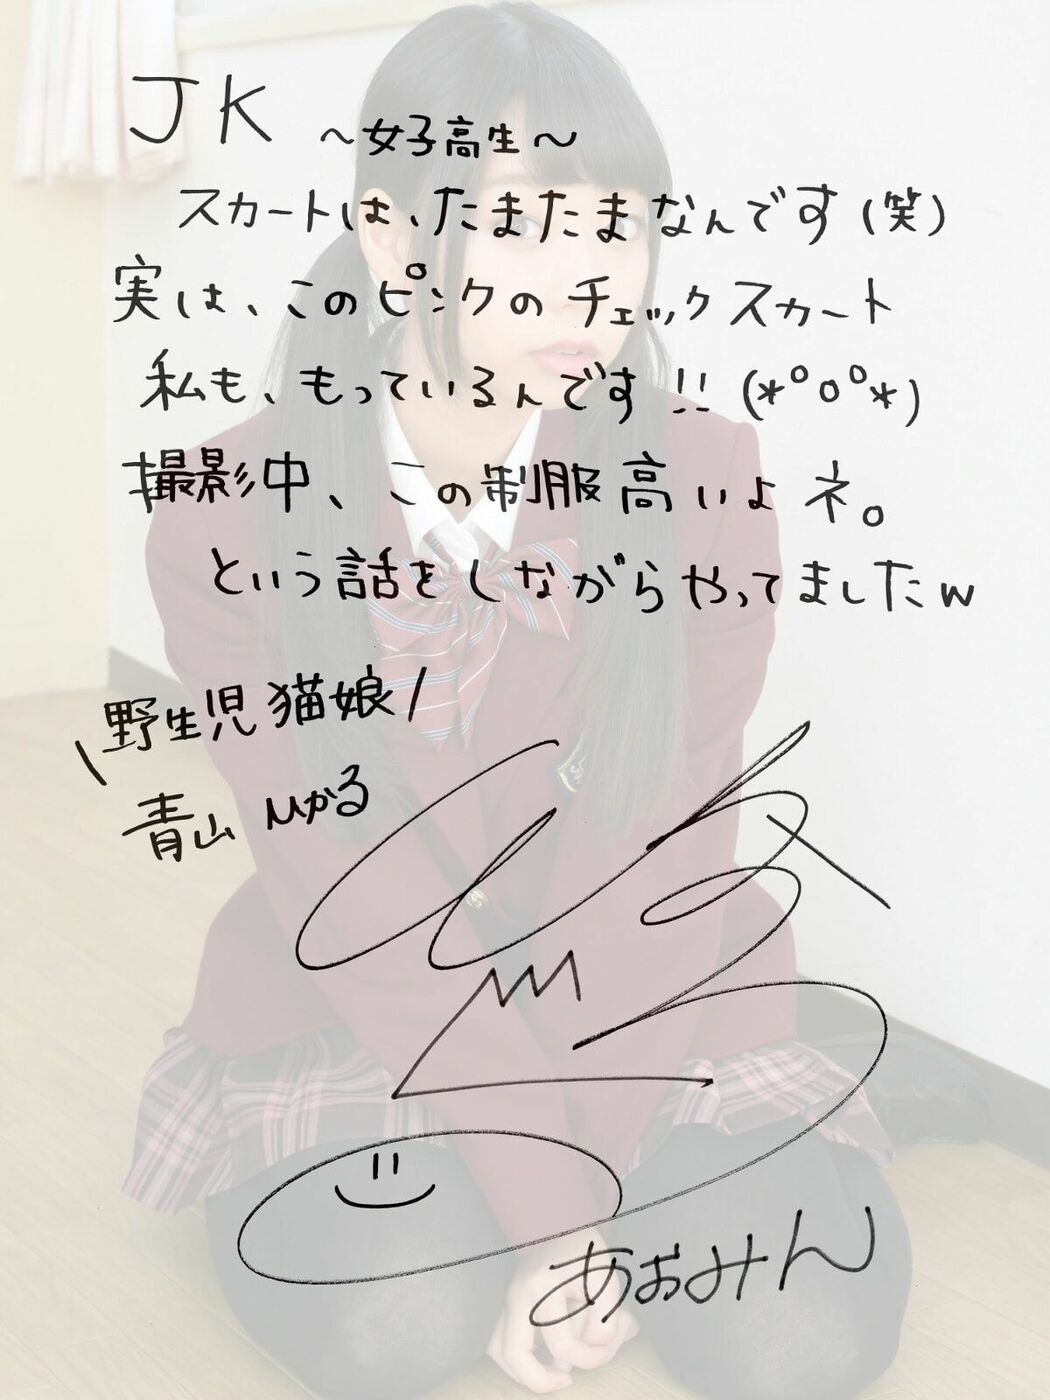 JK ～女子高生～
スカートは、たまたまなんです(笑)
実は、このピンクのチェックスカート
私も、もっているんです!! (*°o°*)
撮影中、この制服高いよネ。
という話をしながらやってましたw
\野生児猫娘/
青山ひかる
あおみん